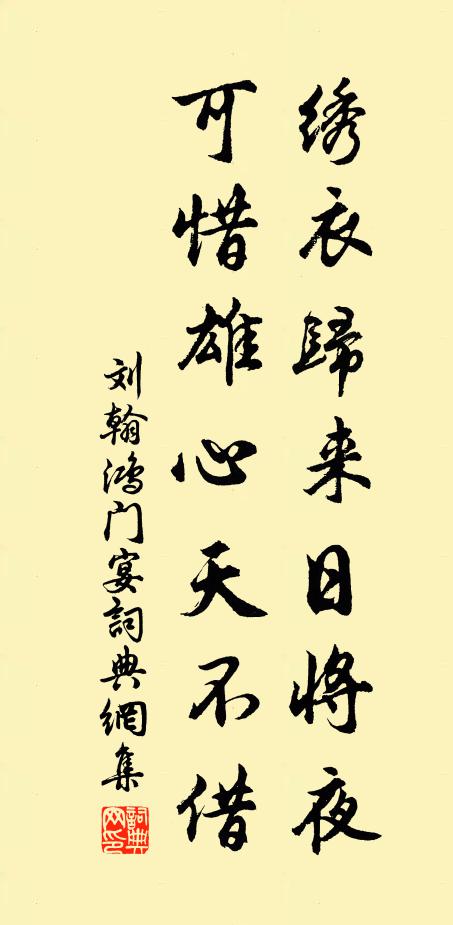 绣衣歸来日将夜
可惜雄心天不借
刘翰鸿门宴詞典網集
詞典網印